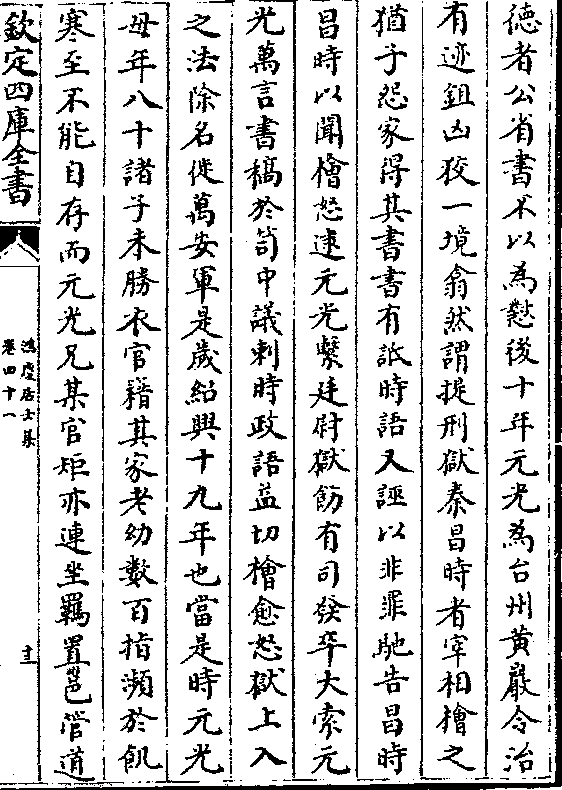 德者公省書不以為懟後十年元光為台州黃巖令治
有迹鉏凶狡一境翕然謂提刑獄秦昌時者宰相檜之
猶子怨家得其書書有詆時語又誣以非罪馳告昌時
昌時以聞檜怒逮元光繫廷尉獄飭有司發卒大索元
光萬言書稿於笥中議刺時政語益切檜愈怒獄上入
之法除名徙萬安軍是歲紹興十九年也當是時元光
母年八十諸子未勝衣官籍其家老幼數百指瀕於飢
寒至不能自存而元光兄某官矩亦連坐羈置邕管道
欽定四庫全書
鴻慶居士集
卷四十一